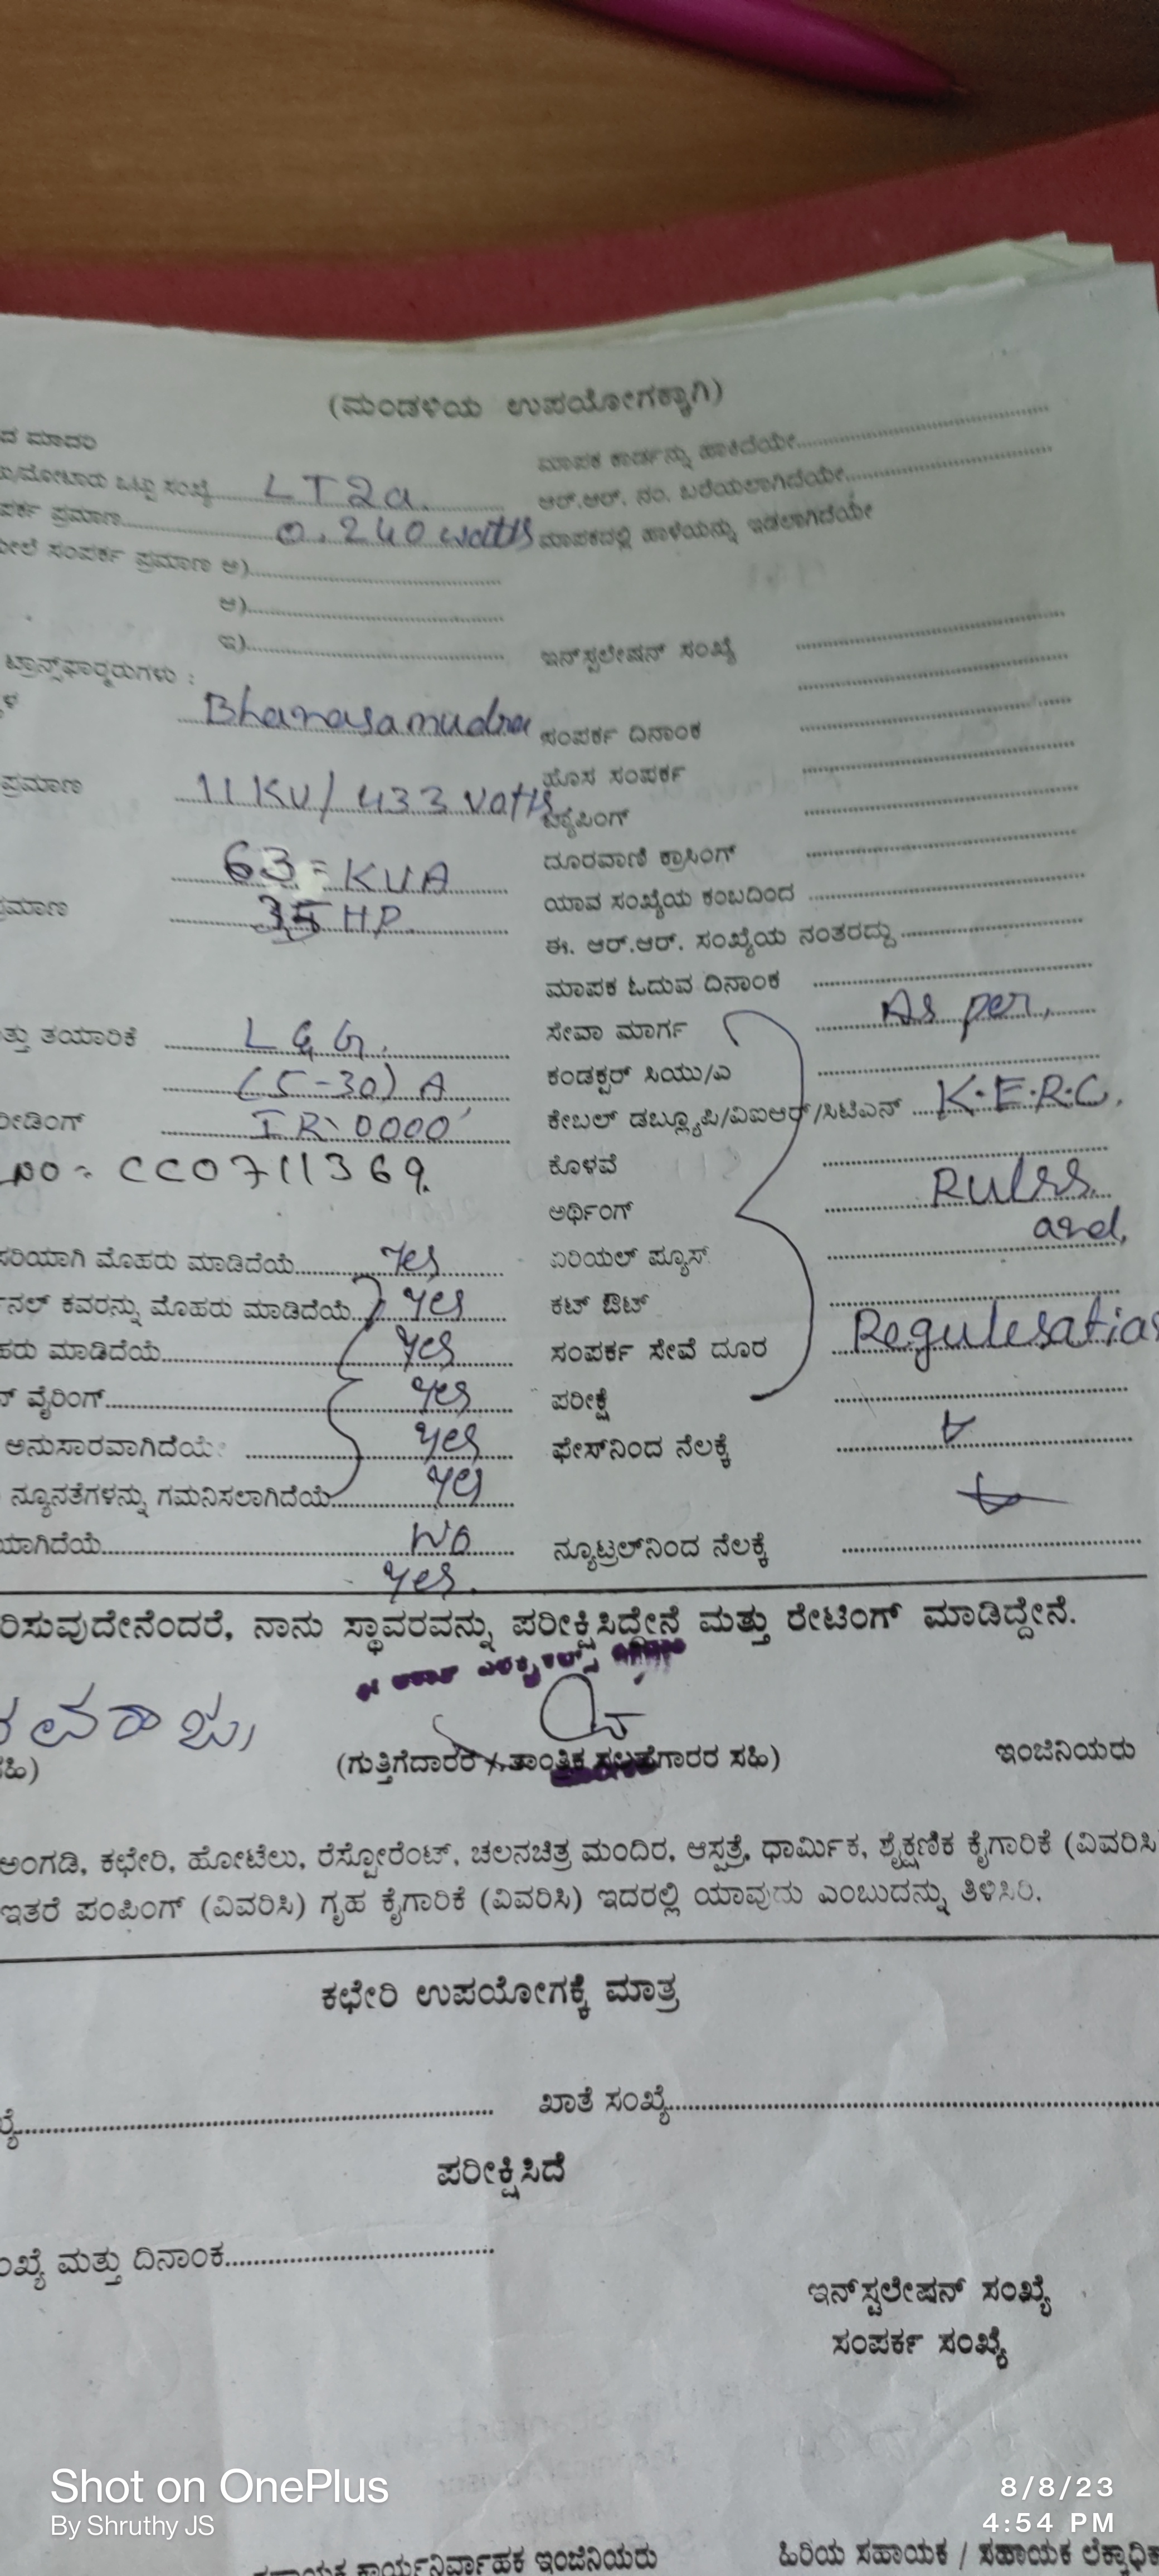 (ಮಂಡಳಿಯ ಉಪಯೋಗಕ್ಕಾಗಿ)
ದ ಮಾದರಿ
ಮಾಪಕ ಕಾರ್ಡನ್ನು ಹಾಕಿದೆಯೇ
/ಮೋಟಾರು ಒಟ್ಟು ಸಂಖ್ಯೆ LT2a.
ಆರ್.ಆರ್. ನಂ. ಬರೆಯಲಾಗಿದೆಯೇ
ಪರ್ಕ ಪ್ರಮಾಣ 0.240 watts
ಮಾಪಕದಲ್ಲಿ ಹಾಳೆಯನ್ನು ಇಡಲಾಗಿದೆಯೇ
ಮೇಲೆ ಸಂಪರ್ಕ ಪ್ರಮಾಣ ಅ)
ಆ)
ಇ)
ಇನ್‌ಸ್ಟಲೇಷನ್ ಸಂಖ್ಯೆ
ಟ್ರಾನ್ಸ್‌ಫಾರ್ಮರುಗಳು :
ಳ Bhanasamudra
ಸಂಪರ್ಕ ದಿನಾಂಕ
ಹೊಸ ಸಂಪರ್ಕ
ಪ್ರಮಾಣ 11 KV/ 433 Vatts
ಟ್ಯಾಪಿಂಗ್
63 = KVA
ದೂರವಾಣಿ ಕ್ರಾಸಿಂಗ್
ಯಾವ ಸಂಖ್ಯೆಯ ಕಂಬದಿಂದ
ಮಾಣ HP.
ಈ. ಆರ್.ಆರ್. ಸಂಖ್ಯೆಯ ನಂತರದ್ದು
ಮಾಪಕ ಓದುವ ದಿನಾಂಕ
ತ್ತು ತಯಾರಿಕೆ L & G.
ಸೇವಾ ಮಾರ್ಗ As per,
(5-30) A
ಕಂಡಕ್ಟರ್ ಸಿಯು/ಎ
ರೀಡಿಂಗ್ IR: 0000
ಕೇಬಲ್ ಡಬ್ಲ್ಯೂಪಿ/ವಿಐಆರ್/ಸಿಟಿಎಸ್ K.E.R.C.
NO = CC0711369.
ಕೊಳವೆ
ಅರ್ಥಿಂಗ್ Rulss
and,
ಸರಿಯಾಗಿ ಮೊಹರು ಮಾಡಿದೆಯೆ Yes
ಏರಿಯಲ್ ಪ್ಯೂಸ್
ನಲ್ ಕವರನ್ನು ಮೊಹರು ಮಾಡಿದೆಯೆ Yes
ಕಟ್ ಔಟ್
ಹರು ಮಾಡಿದೆಯೆ Yes
ಸಂಪರ್ಕ ಸೇವೆ ದೂರ Regulesatias
ನ್ ವೈರಿಂಗ್ Yes
ಪರೀಕ್ಷೆ
ಅನುಸಾರವಾಗಿದೆಯೆ Yes
ಫೇಸ್‌ನಿಂದ ನೆಲಕ್ಕೆ
ನ್ಯೂನತೆಗಳನ್ನು ಗಮನಿಸಲಾಗಿದೆಯೆ Yes
ಯಾಗಿದೆಯೆ No
ನ್ಯೂಟ್ರಲ್‌ನಿಂದ ನೆಲಕ್ಕೆ
Yes.
ರಿಸುವುದೇನೆಂದರೆ, ನಾನು ಸ್ಥಾವರವನ್ನು ಪರೀಕ್ಷಿಸಿದ್ದೇನೆ ಮತ್ತು ರೇಟಿಂಗ್ ಮಾಡಿದ್ದೇನೆ.
ವರಾಜು
ಸಹಿ)
(ಗುತ್ತಿಗೆದಾರರ / ತಾಂತ್ರಿಕ ಸಲಹೆಗಾರರ ಸಹಿ)
ಇಂಜಿನಿಯರು
ಅಂಗಡಿ, ಕಛೇರಿ, ಹೋಟೆಲು, ರೆಸ್ಟೋರೆಂಟ್, ಚಲನಚಿತ್ರ ಮಂದಿರ, ಆಸ್ಪತ್ರೆ, ಧಾರ್ಮಿಕ, ಶೈಕ್ಷಣಿಕ ಕೈಗಾರಿಕೆ (ವಿವರಿಸಿ
ಇತರೆ ಪಂಪಿಂಗ್ (ವಿವರಿಸಿ) ಗೃಹ ಕೈಗಾರಿಕೆ (ವಿವರಿಸಿ) ಇದರಲ್ಲಿ ಯಾವುದು ಎಂಬುದನ್ನು ತಿಳಿಸಿರಿ.
ಕಛೇರಿ ಉಪಯೋಗಕ್ಕೆ ಮಾತ್ರ
ಖ್ಯೆ
ಖಾತೆ ಸಂಖ್ಯೆ
ಪರೀಕ್ಷಿಸಿದೆ
ಂಖ್ಯೆ ಮತ್ತು ದಿನಾಂಕ
ಇನ್‌ಸ್ಟಲೇಷನ್ ಸಂಖ್ಯೆ
ಸಂಪರ್ಕ ಸಂಖ್ಯೆ
Shot on OnePlus
By Shruthy JS
8/8/23
4:54 PM
ಸಹಾಯಕ ಕಾರ್ಯನಿರ್ವಾಹಕ ಇಂಜಿನಿಯರು
ಹಿರಿಯ ಸಹಾಯಕ / ಸಹಾಯಕ ಲೆಕ್ಕಾಧಿಕ